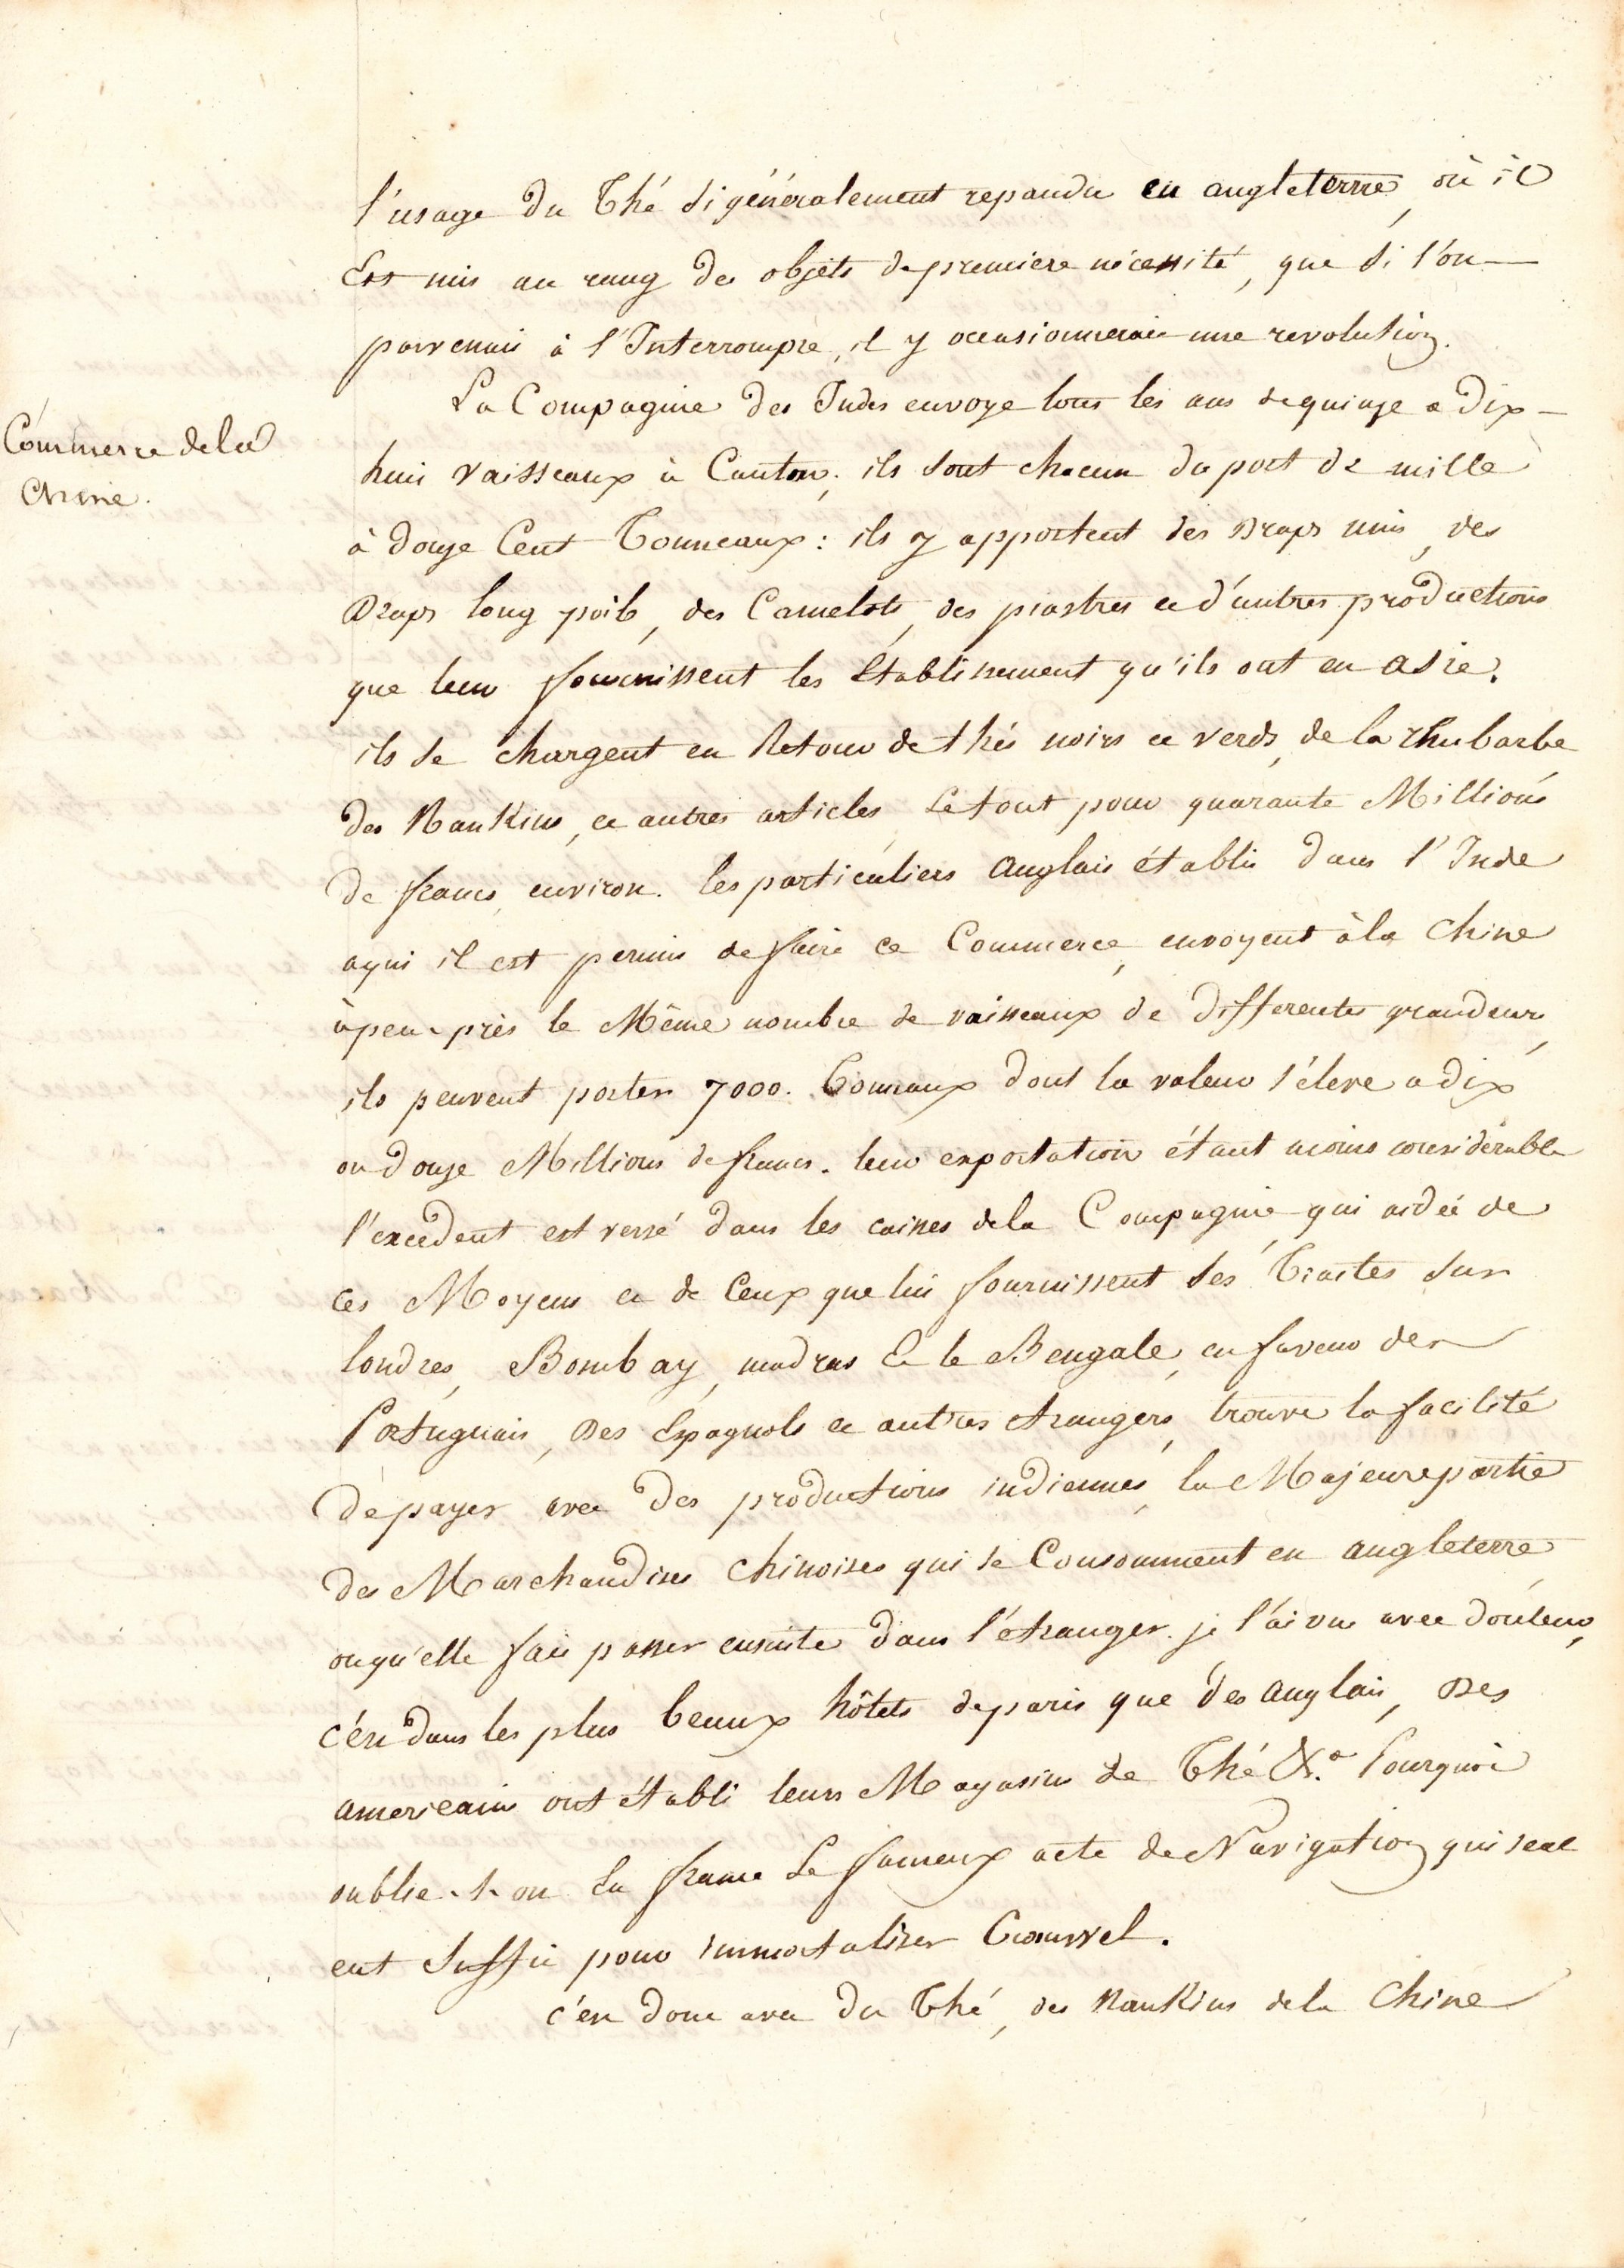 l'usage du Thé si généralement repandu en angleterre, où il
Est mis au rang des objets de premiere nécessité, que si l'on
parvenait à l'Interrompre, il y occasionnerait une revolution.
Commerce de la
Chine.
La Compagnie des Indes envoye tous les ans de quinze a Dix-
huit vaisseaux à Canton; ils sont chacun du port de mille
à douze Cent Tonneaux: ils y apportent des Draps unis, des
Draps long poils, des Camelots, des piastres et d'autres productions
que leur fournissent les Etablissement qu'ils ont en asie.
ils se chargent en Retour de thés noirs et verds, de la rhubarbe
des Nankins, et autres articles, Le tout pour quarante Millions
de francs, environ. les particuliers anglais établis dans l'Inde
a qui il est permis de faire ce Commerce, envoyent à la Chine
à peu-près le Même nombre de vaisseaux de differentes grandeurs,
ils peuvent porter 7000. Tonneaux dont la valeur s'éleve a dix
ou douze Millions de francs. leur exportation étant moins considerable
l'excédent est versé dans les caisses de la Compagnie, qui aidée de
ces Moyens et de Ceux que lui fournissent ses Traites sur
londres, Bombay, madras Et le Bengale, en faveur des
Portuguais, Des Espagnols et autres etrangers, trouve la facilité
de payer avec des productions indiennes, la Majeure partie
des Marchandises Chinoises qui se Consomment en angleterre
ou qu'elle fait passer ensuite dans l'étranger. je l'ai vu avec douleur,
c'est dans les plus beaux hôtels de paris que des anglais, Des
americains ont établi leurs Magasins de Thé &.ª Pourquoi
oublie-t-on En france Le fameux acte de Navigation qui seul
eut suffit pour immortaliser Cromwel.
c'est donc avec du Thé, des Nankins de la Chine